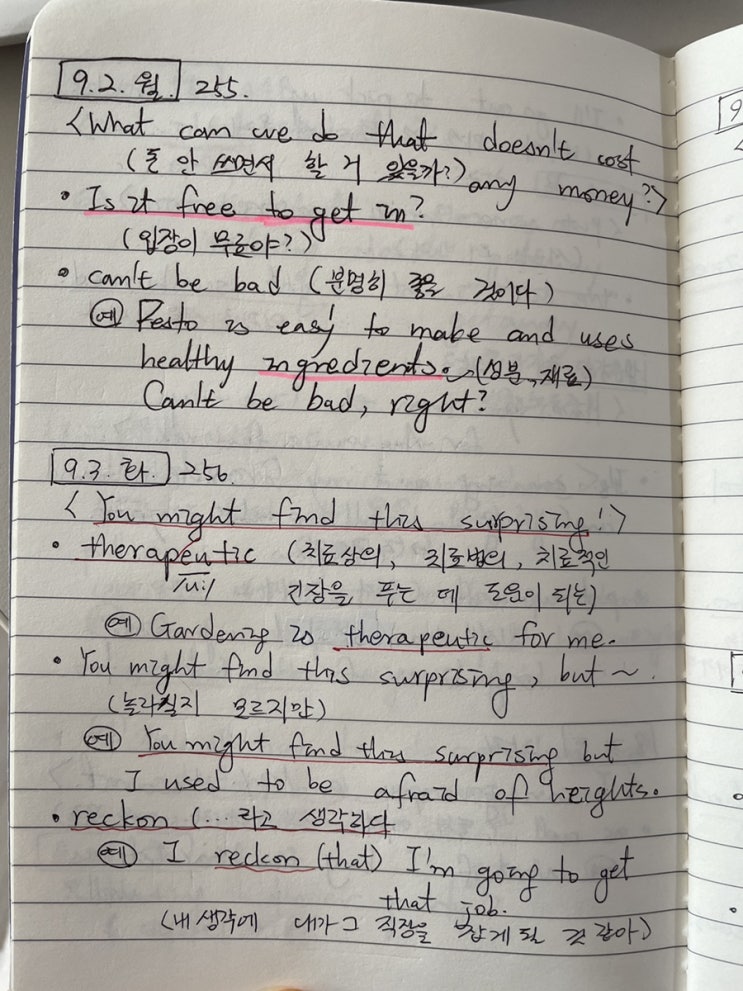 9.2.월. 255.
<What can we do that doesn't cost
(돈 안 쓰면서 할 거 있을까?) any money?>
• Is it free to get in?
(입장이 무료야?)
• can't be bad (분명히 좋을 것이다)
예 Pesto is easy to make and uses
healthy ingredients. (성분, 재료)
Can't be bad, right?
9.3.화. 256.
<You might find this surprising!>
• therapeutic (치료상의, 치료법의, 치료적인
긴장을 푸는 데 도움이 되는)
예 Gardening is therapeutic for me.
• You might find this surprising, but ~.
(놀라질지 모르지만)
예 You might find this surprising but
I used to be afraid of heights.
• reckon (...라고 생각하다
예 I reckon (that) I'm going to get
that job.
(내 생각에 내가 그 직장을 잡게 될 것 같아)